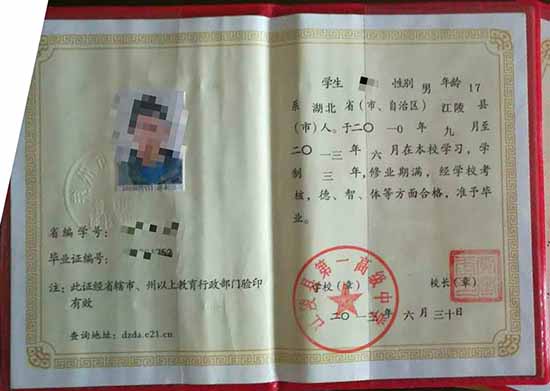 学生 性别 男 年龄 17
系 湖北 省(市、自治区) 江陵 县
(市)人。于二〇一〇年 九 月至
二〇一三年 六 月在本校学习,学
制 三 年,修业期满,经学校考
核,德、智、体等方面合格,准予毕
业。
学校(章) 校长(章)
江陵县第一高级中学
二〇一三年 六 月 三十日
省编学号:
毕业证编号:
注:此证经省辖市、州以上教育行政部门验印
有效
查询地址:dzda.e21.cn